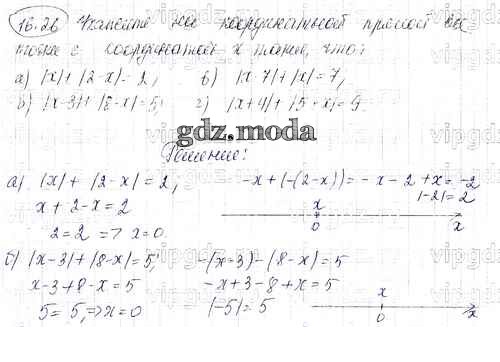 16.26 Укажите на координатной прямой все
точки с координатой x такие, что:
а) |x| + |2-x| = 2; в) |x-7| + |x| = 7;
б) |x-3| + |8-x| = 5; г) |x+4| + |5-x| = 9.
gdz.moda
Решение:
а) |x| + |2-x| = 2; -x + (-(2-x)) = -x - 2 + x = -2
x + 2 - x = 2 |-2| = 2
2 = 2 => x = 0 x 0 x
б) |x-3| + |8-x| = 5; -(x-3) - (8-x) = 5
x - 3 + 8 - x = 5 -x + 3 - 8 + x = 5
5 = 5, => x = 0 |-5| = 5 x 0 x